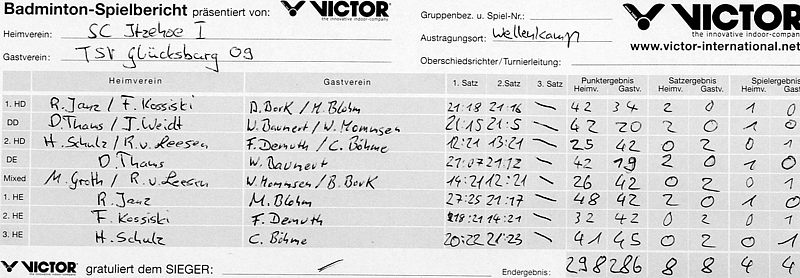 Badminton-Spielbericht präsentiert von: VICTOR the innovative indoor-company
Gruppenbez. u. Spiel-Nr.: VICTOR the innovative indoor-company
Heimverein: SC Itzehoe I
Austragungsort: Wellenkamp
www.victor-international.net
Gastverein: TSV Glücksburg 09
Oberschiedsrichter/Turnierleitung:
Heimverein Gastverein 1. Satz 2. Satz 3. Satz Punktergebnis Heimv. Gastv. Satzergebnis Heimv. Gastv. Spielergebnis Heimv. Gastv.
1. HD R. Janz / F. Kossiski D. Bork / M. Blohm 21:18 21:16 — 42 34 2 0 1 0
DD D. Thams / J. Weidt W. Baunert / W. Mommsen 21:15 21:5 — 42 20 2 0 1 0
2. HD H. Schulz / R. v. Leesen F. Demuth / C. Böhme 12:21 13:21 — 25 42 0 2 0 1
DE D. Thams W. Baunert 21:07 21:12 — 42 19 2 0 1 0
Mixed M. Groth / R. v. Leesen W. Mommsen / B. Bork 14:21 12:21 — 26 42 0 2 0 1
1. HE R. Janz M. Blohm 27:25 21:17 — 48 42 2 0 1 0
2. HE F. Kossiski F. Demuth 18:21 14:21 — 32 42 0 2 0 1
3. HE H. Schulz C. Böhme 20:22 21:23 — 41 45 0 2 0 1
VICTOR the innovative indoor-company gratuliert dem SIEGER: Endergebnis: 298 286 8 8 4 4